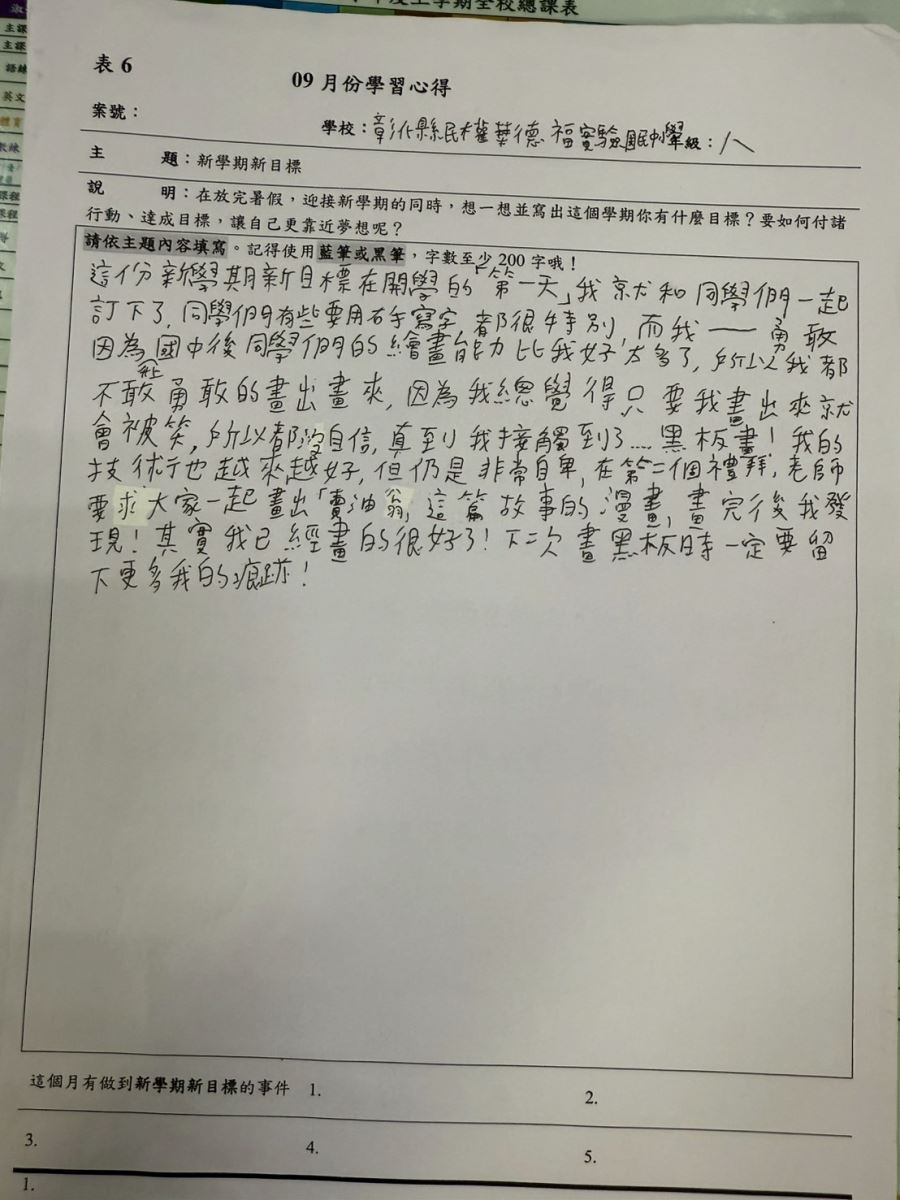 年度上學期全校總課表
主課
主課
英文
體育
課程
課程
表 6
09 月份學習心得
案號：
學校：彰化縣民權華德福實驗國民中小學 年級：八
主 題：新學期新目標
說 明：在放完暑假，迎接新學期的同時，想一想並寫出這個學期你有什麼目標？要如何付諸
行動、達成目標，讓自己更靠近夢想呢？
請依主題內容填寫。記得使用藍筆或黑筆，字數至少 200 字哦！
這份新學期新目標在開學的「第一天」我就和同學們一起
訂下了，同學們有些要用右手寫字 都很特別，而我——勇敢
因為國中後同學們的繪畫能力比我好太多了，所以我都
不敢勇敢的畫出畫來，因為我總覺得只要我畫出來就
會被笑，所以都沒自信，直到我接觸到了....黑板畫！我的
技術行也越來越好，但仍是非常自卑，在第二個禮拜，老師
要求大家一起畫出「賣油翁」這篇故事的漫畫，畫完後我發
現！其實我已經畫的很好了！下二次畫黑板時一定要留
下更多我的痕跡！
這個月有做到新學期新目標的事件 1. 2.
3. 4. 5.
1.